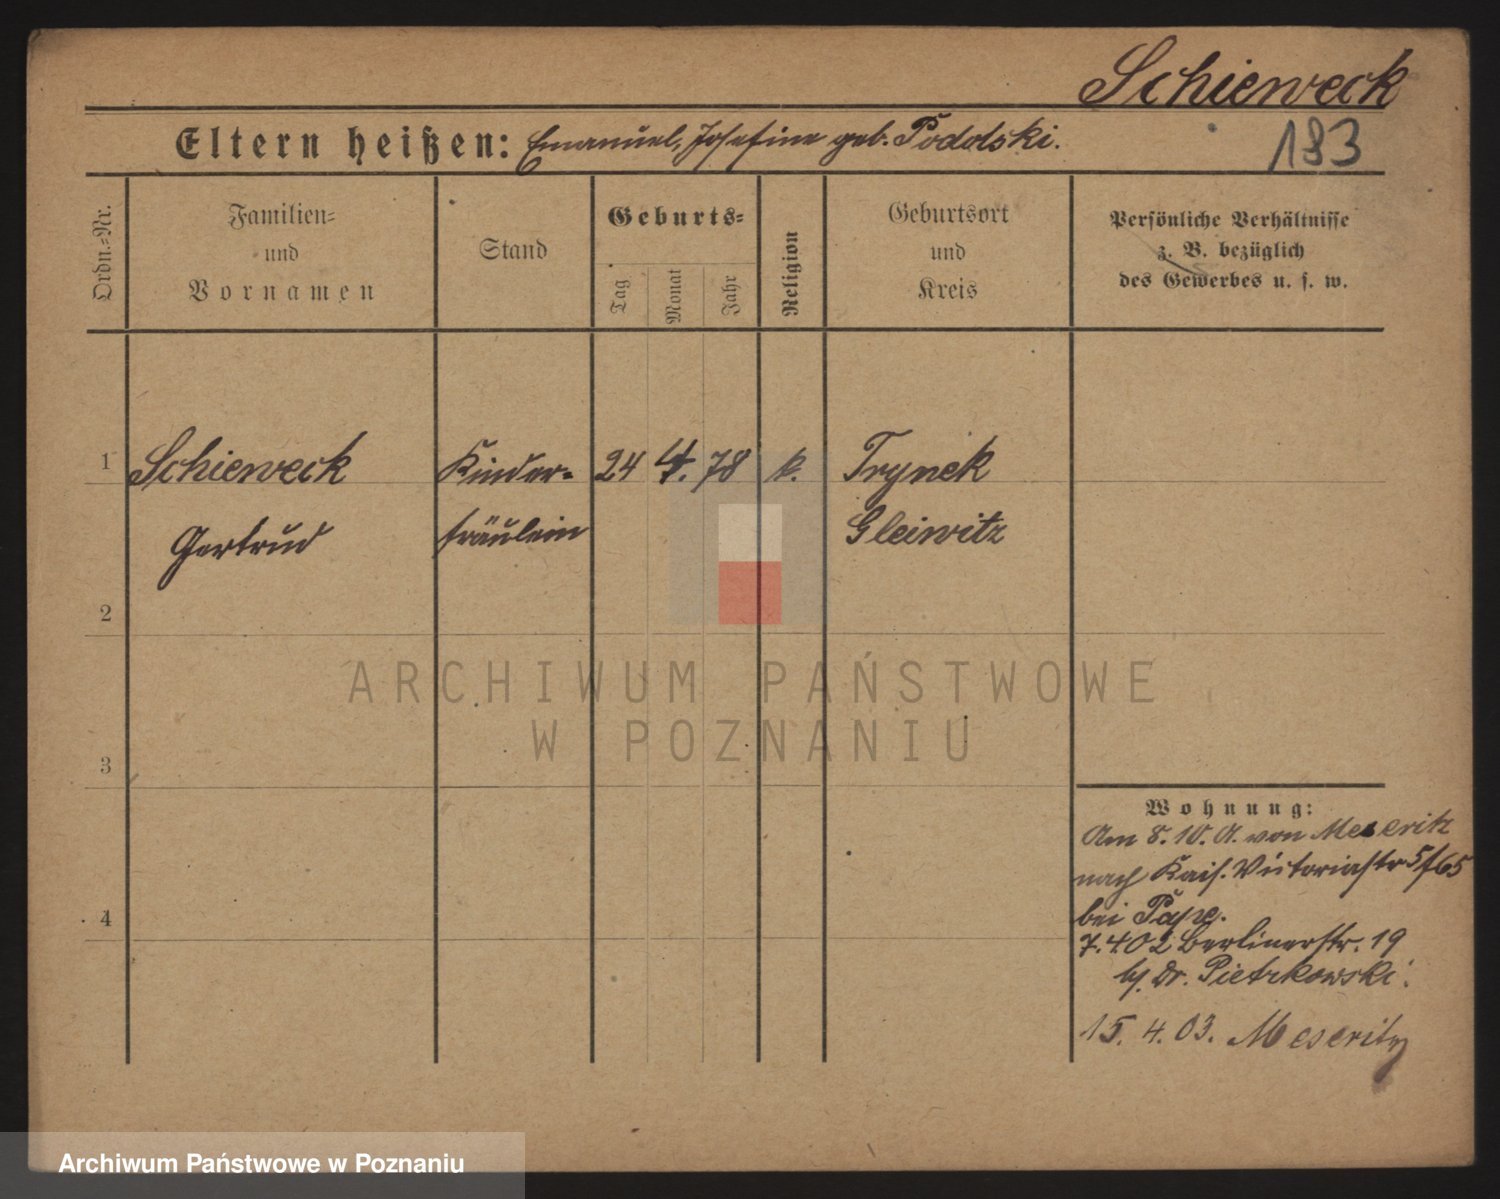 Schieweck
Eltern heißen: Emanuel, Josefine geb. Podolski.
183
Ordn.=Nr.
Familien=
und
Vornamen
Stand
Geburts=
Tag
Monat
Jahr
Religion
Geburtsort
und
Kreis
Persönliche Verhältnisse
z. B. bezüglich
des Gewerbes u. s. w.
1 Schieweck Kinder- 24 4. 78 k. Trynek
Gertrud fräulein Gleiwitz
2
3
4
ARCHIWUM PAŃSTWOWE
W POZNANIU
Wohnung:
Am 8. 10. 01. von Meseritz
nach Kais. Victoriastr 5/65
bei Pape.
7. 4 02 Berlinerstr. 19
bj. Dr. Pietrkowski.
15. 4. 03. Meseritz
Archiwum Państwowe w Poznaniu